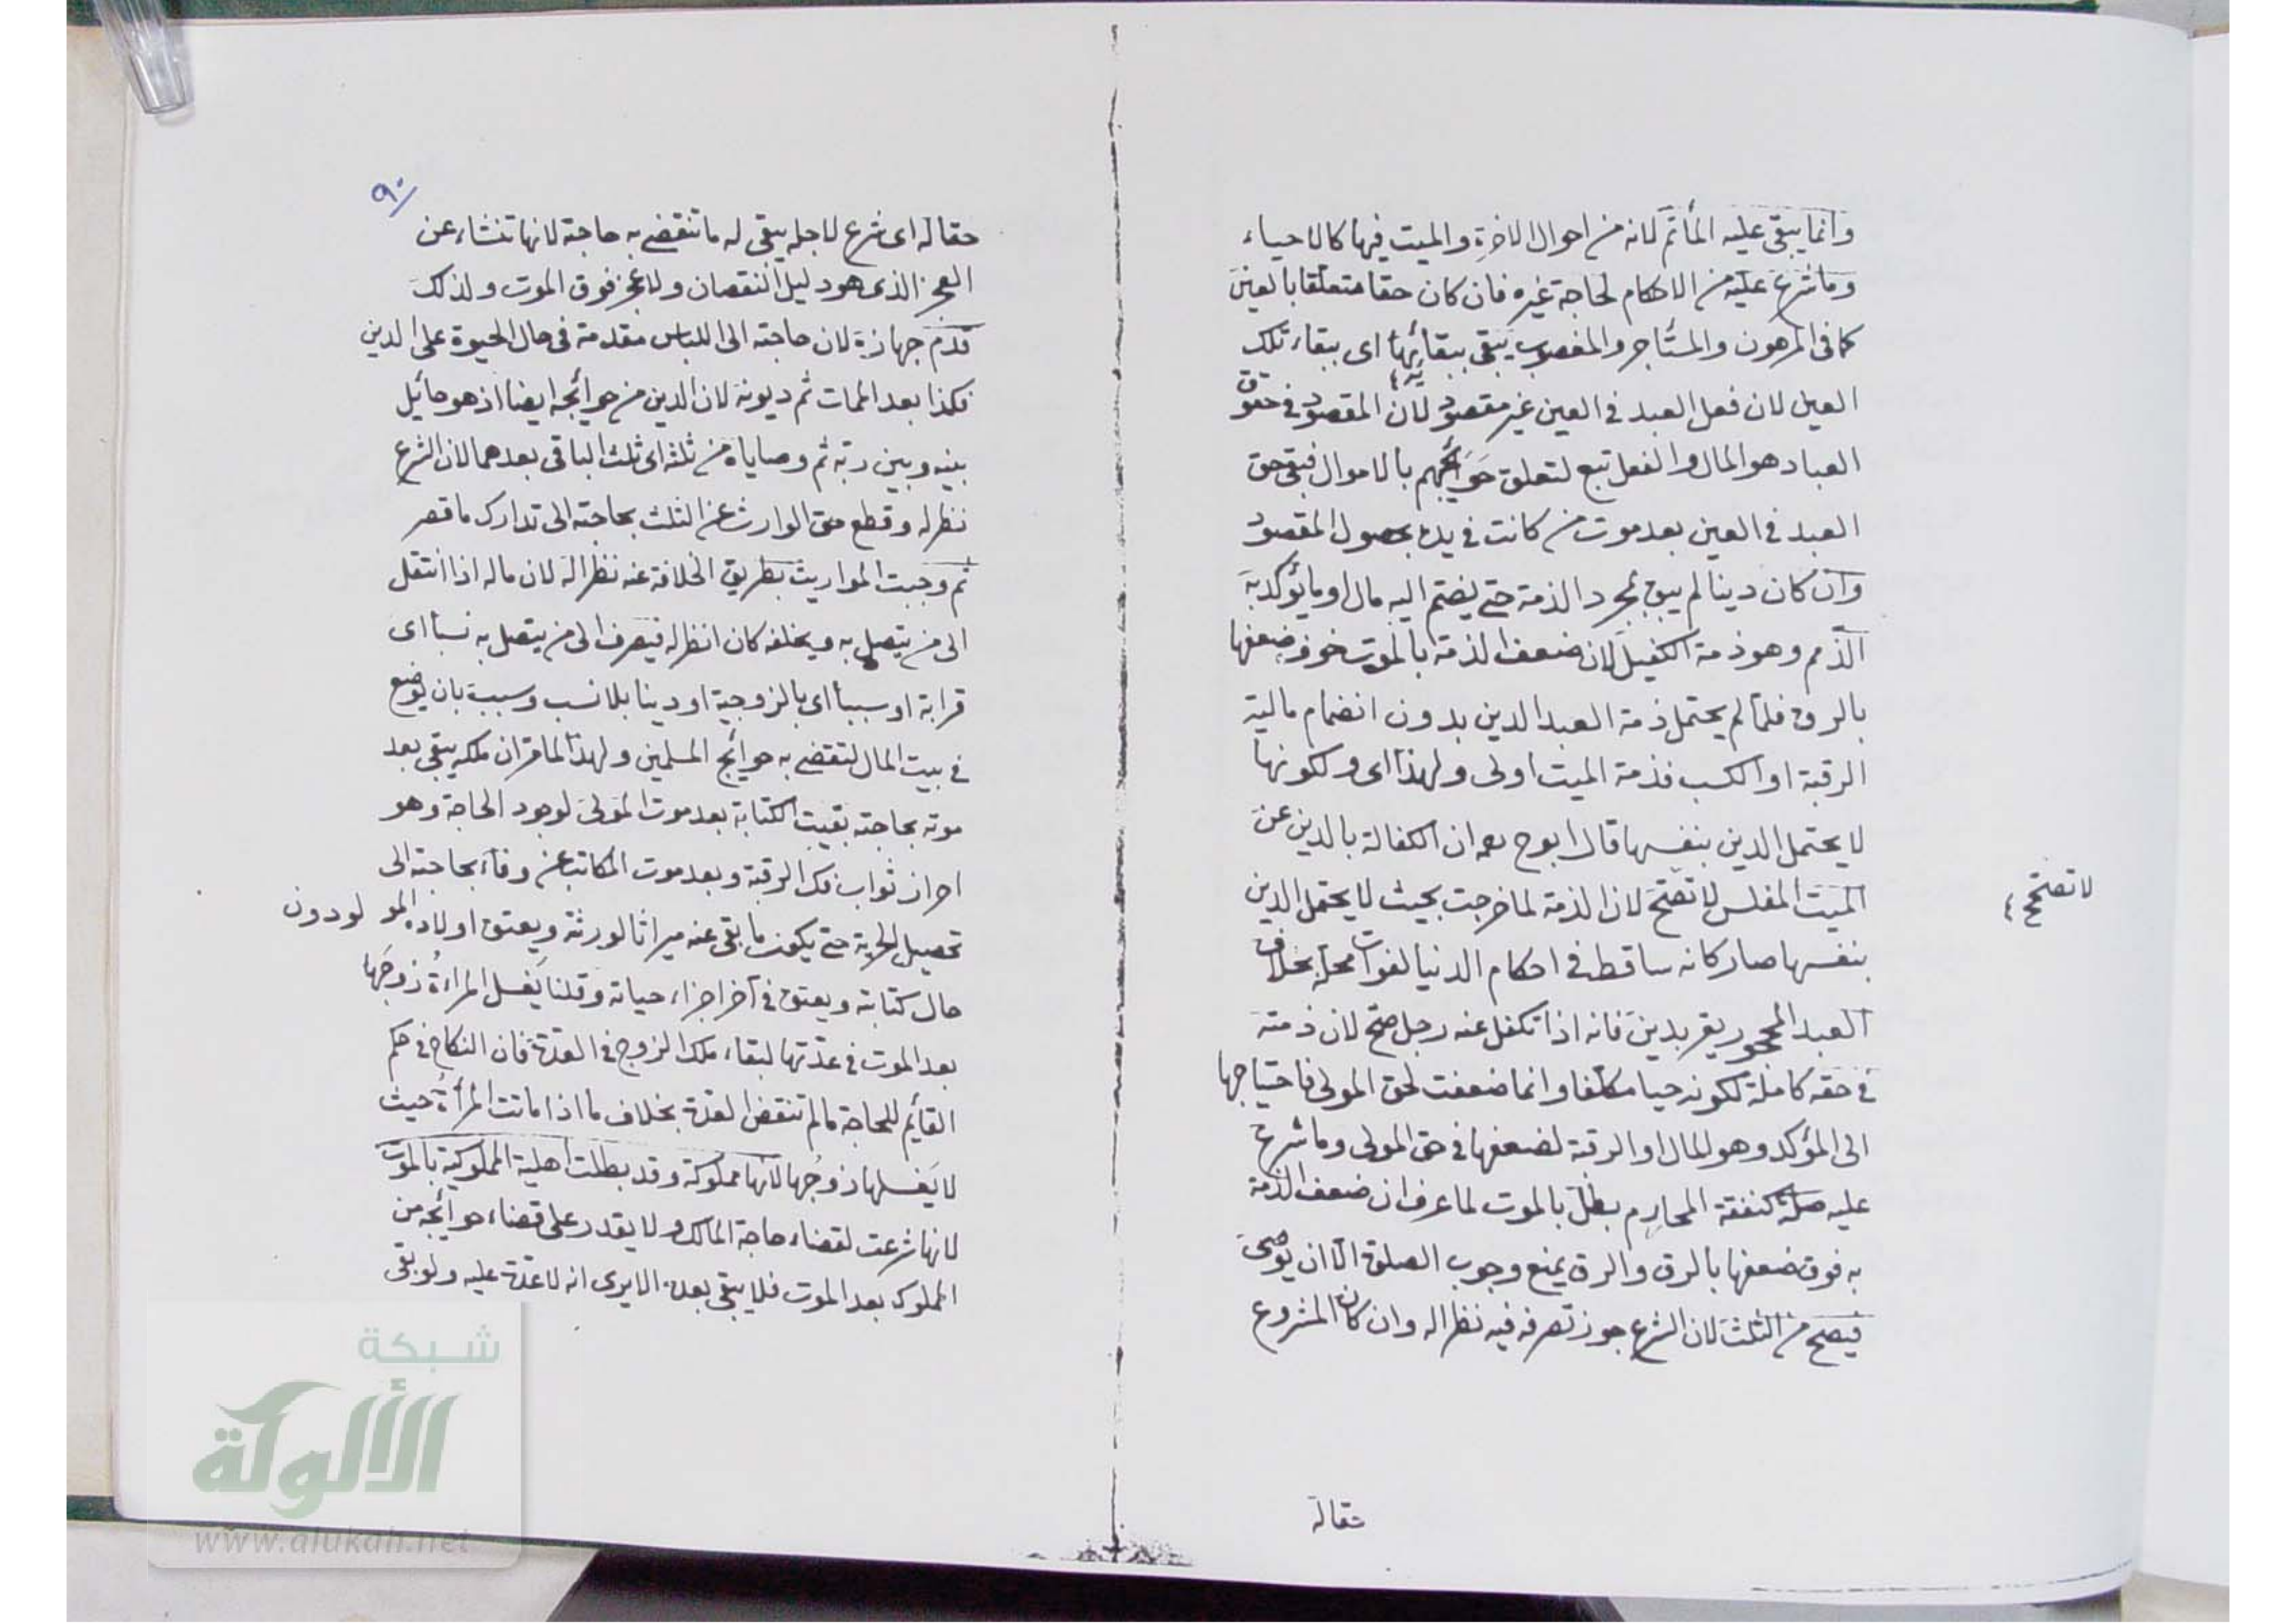 وانما يبقى عليه المأثم لانه من احوال الاخرة والميت فيها كالاحياء
وما شرع عليه من الاحكام لحاجة غيره فان كان حقا متعلقا بالعين
كما فى المرهون والمستاجر والمغصوب يبقى ببقائها اى ببقاء تلك
العين لان فعل العبد فى العين غير مقصود لان المقصود فى حقوق
العباد هو المال والفعل تبع لتعلق حوائجهم بالاموال فبقى حق
العبد فى العين بعد موت من كانت فى يده بحصول المقصود
وان كان دينا لم يبق بمجرد الذمة حتى يضم اليه مال او ما يؤكد به
الذمم وهو ذمة الكفيل لان ضعف الذمة بالموت فوق ضعفها
بالرق فلما لم يحتمل ذمة العبد الدين بدون انضمام مالية
الرقبة او الكسب فذمة الميت اولى ولهذا اى ولكونها
لا يحتمل الدين بنفسها قال ابو ح رحمه ان الكفالة بالدين عن
الميت المفلس لا تصح لان الذمة لما خرجت بحيث لا يحتمل الدين
لا تصح
بنفسها صار كانه ساقط فى احكام الدنيا لفوات محله بخلاف
العبد المحجور يقر بدين فانه اذا تكفل عنه رجل صح لان ذمته
فى حقه كاملة لكونه حيا مكلفا وانما ضعفت لحق المولى فاحتياجها
الى المؤكد وهو المال او الرقبة لضعفها فى حق المولى وما شرع
عليه صلة كنفقة المحارم بطل بالموت لما عرف ان ضعف الذمة
به فوق ضعفها بالرق والرق يمنع وجوب الصلة الا ان يوصى
فيصح من الثلث لان الشرع جوز تصرفه فيه نظرا له وان كان المشروع
حقاله
٩٠
حقاله اى شرع لاجله يبقى له ما تنقضى به حاجة لانها تنشاء عن
العجز الذى هو دليل النقصان ولا عجز فوق الموت ولذلك
قدم جهازه لان حاجته الى اللباس مقدمة فى حال الحيوة على الدين
فكذا بعد الممات ثم ديونه لان الدين من حوائجه ايضا اذ هو حائيل
بينه وبين ربه ثم وصاياه من ثلثه اى ثلث الباقى بعدهما لان الشرع
نظر له وقطع حق الوارث عن الثلث بحاجته الى تدارك ما قصر
ثم وجبت المواريث بطريق الخلافة عنه نظرا له لان ماله اذا انتقل
الى من يتصل به ويخلفه كان انظر له فيصرف الى من يتصل به نسبا اى
قرابة او سببا اى بالزوجية او دينا بلا نسب وسبب بان يوضع
فى بيت المال لتقضى به حوايج المسلمين ولهذا لما مر ان ملكه يبقى بعد
موته بحاجته بقيت الكتابة بعد موت المولى لوجود الحاجة وهو
احراز ثواب فك الرقبة وبعد موت المكاتب عن وفاء بحاجته الى
تحصيل الحرية حتى يكون ما بقى عنه ميراثا لورثة ويعتق اولاده المولودون
حال كتابة ويعتق فى آخر اجزاء حياته وقلنا يغسل المراءة زوجها
بعد الموت فى عدتها لبقاء ملك الزوج فى العدة فان النكاح فى حكم
القائم للحاجة ما لم تنقض العدة بخلاف ما اذا ماتت المرأة حيث
لا يغسلها زوجها لانها مملوكة وقد بطلت اهلية المملوكية بالموت
لانها شرعت لقضاء حاجة المالك ولا يقدر على قضاء حوائجه من
المملوك بعد الموت فلا يبقى بعده الا يرى انه لا عدة عليه ولو بقى
شبكة
الألوكة
www.alukah.net